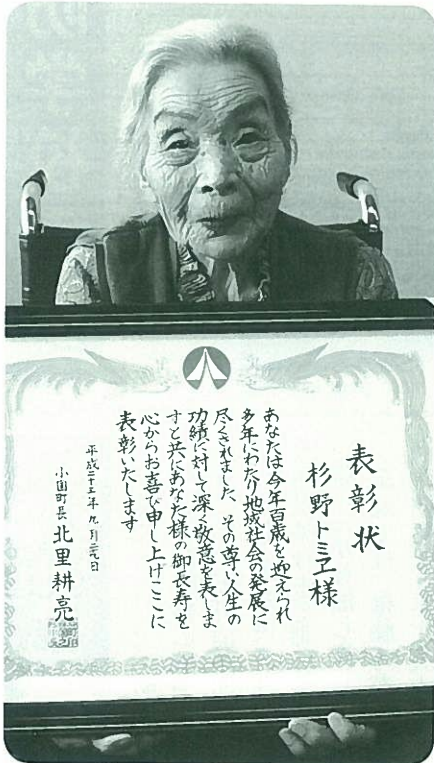 表彰状
杉野トミヱ様
あなたは今年百歳を迎えられ
多年にわたり地域社会の発展に
尽くされました その尊い人生の
功績に対して深く敬意を表しま
すと共にあなた様の御長寿を
心からお喜び申し上げここに
表彰いたします
平成二十五年九月
小国町長 北里耕亮